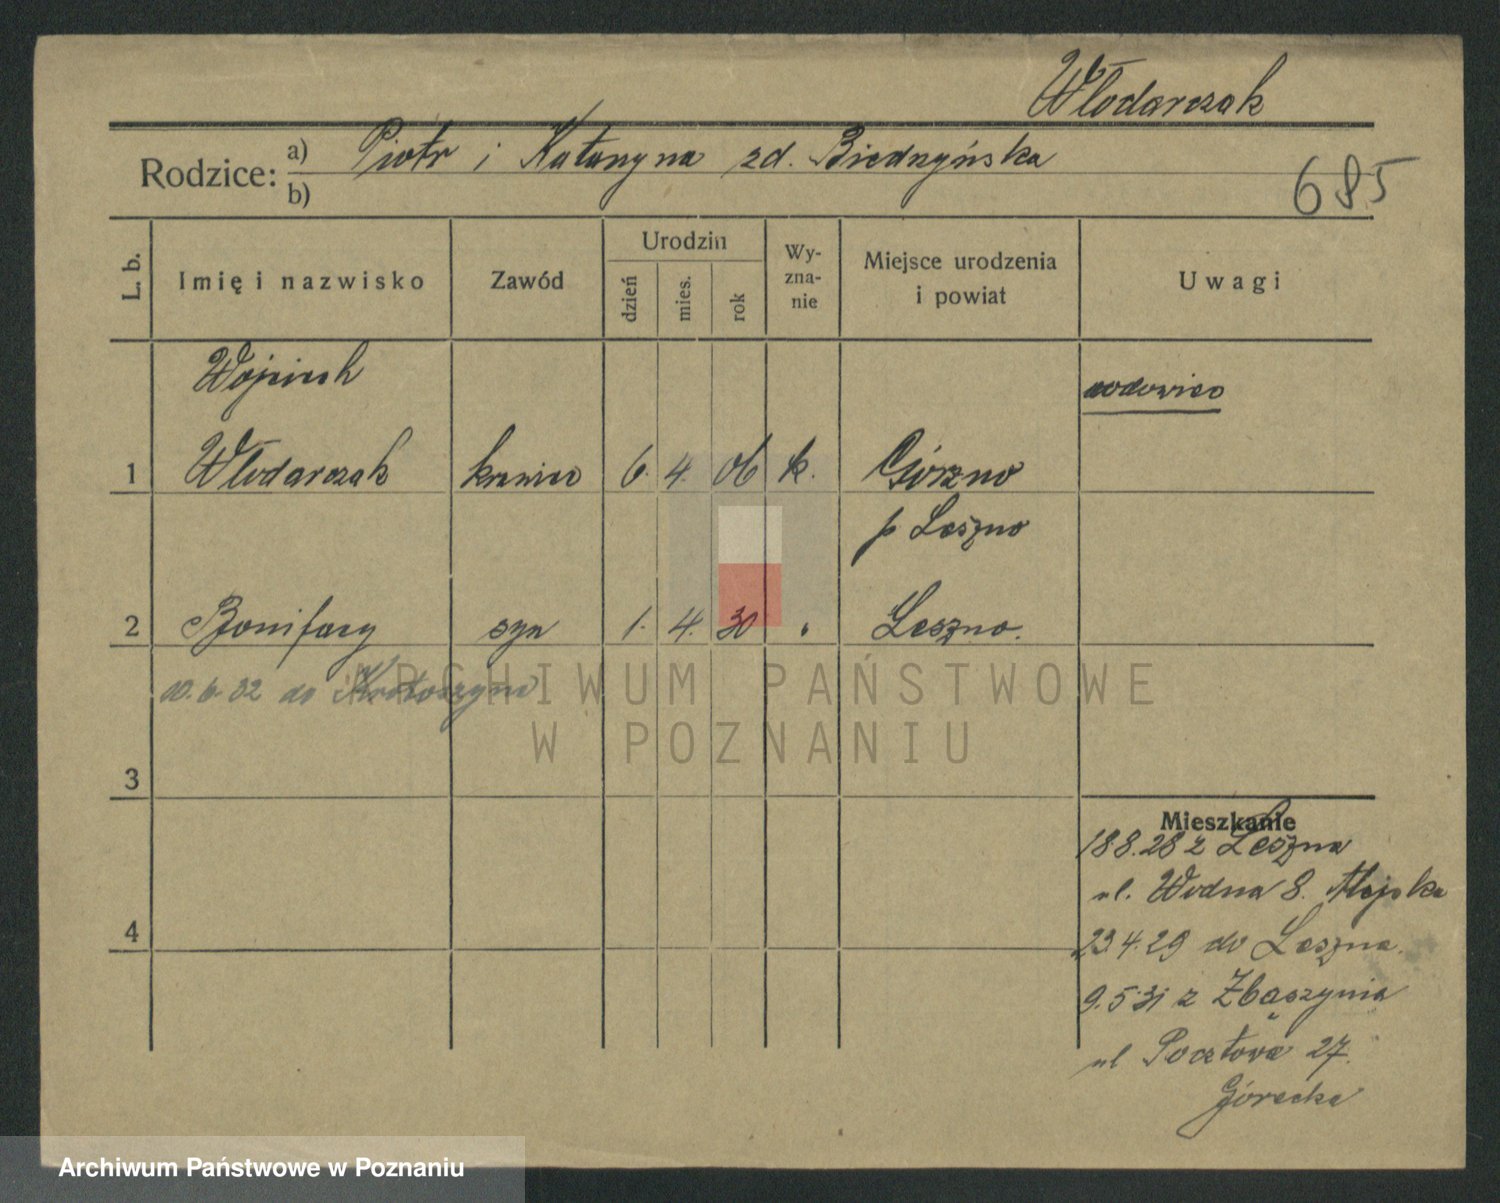 Włodarczak
Rodzice: a) Piotr i Katarzyna zd. Biedrzyńska
b)
685
L. b.
Imię i nazwisko
Zawód
Urodzin
dzień
mies.
rok
Wy-
zna-
nie
Miejsce urodzenia
i powiat
Uwagi
Wojciech
wdowiec
1 Włodarczak krawiec 6. 4. 06 k. Górzno
p Leszno
2 Bonifacy syn 1. 4. 30 " Leszno.
10.6.32 do Krotoszyna
ARCHIWUM PAŃSTWOWE
W POZNANIU
3
Mieszkanie
18 8. 28 z Leszna
ul. Wodna 8.
4
23.4.29 do Leszna.
9.5.31 z Zbąszynia
ul Pocztowa 27.
Górecka
Archiwum Państwowe w Poznaniu